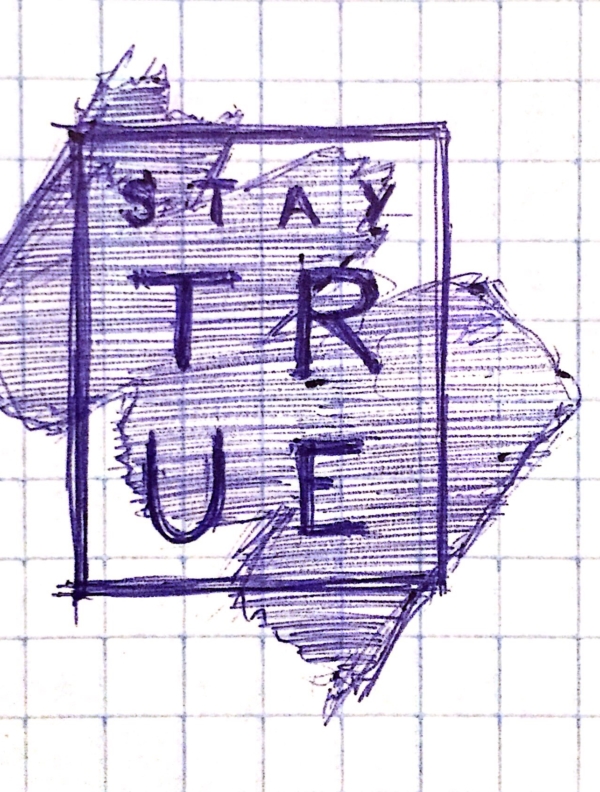 STAY
TR
UE